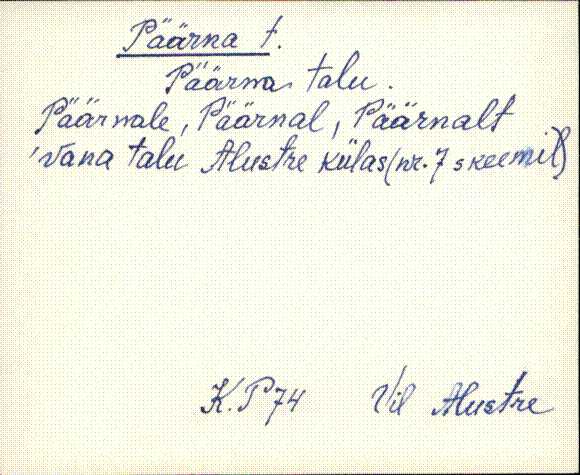 Päärna t.
Päärna talu.
Päärnale, Päärnal, Päärnalt
Vana talu Alustre külas (nr. 7 skeemil)
K.P 74 Vil Alustre